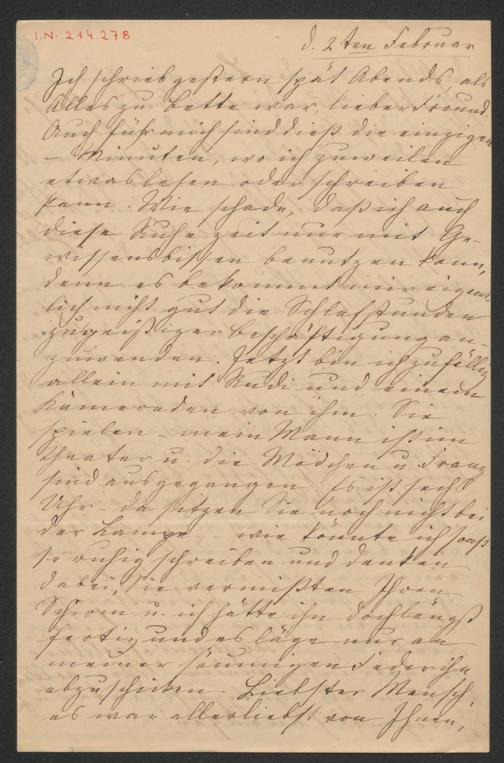 I.N. 214.278
d. 2ten Februar
Ich schrieb gestern spät Abends als
Alles zu Bette war, lieber Freund.
Auch für mich sind dieß die einzigen
– Minuten, wo ich zuweilen
etwas lesen oder schreiben
kann. Wie schade, daß ich auch
diese Ruhezeit nur mit Ge-
wissensbissen benutzen kann,
denn es bekommt mir eigent-
lich nicht gut die Schlafstunden
zu geistiger Beschäftigung an-
zuwenden. Jetzt bin ich zufällig
allein mit Rudi und einem
Kameraden von ihm. Sie
spielen – mein Mann ist im
Theater u. die Mädchen u. Franz
sind ausgegangen. Es ist sechs
Uhr – da sitzen Sie noch nicht bei
der Lampe – wie könnte ich sonst
so ruhig schreiben und denken
dabei, Sie vermißten Ihren
Schirm u. ich hätte ihn doch längst
fertig und es läge nur an
meiner säumigen Feder ihn
abzuschicken. Liebster Mensch,
es war allerliebst von Ihnen,